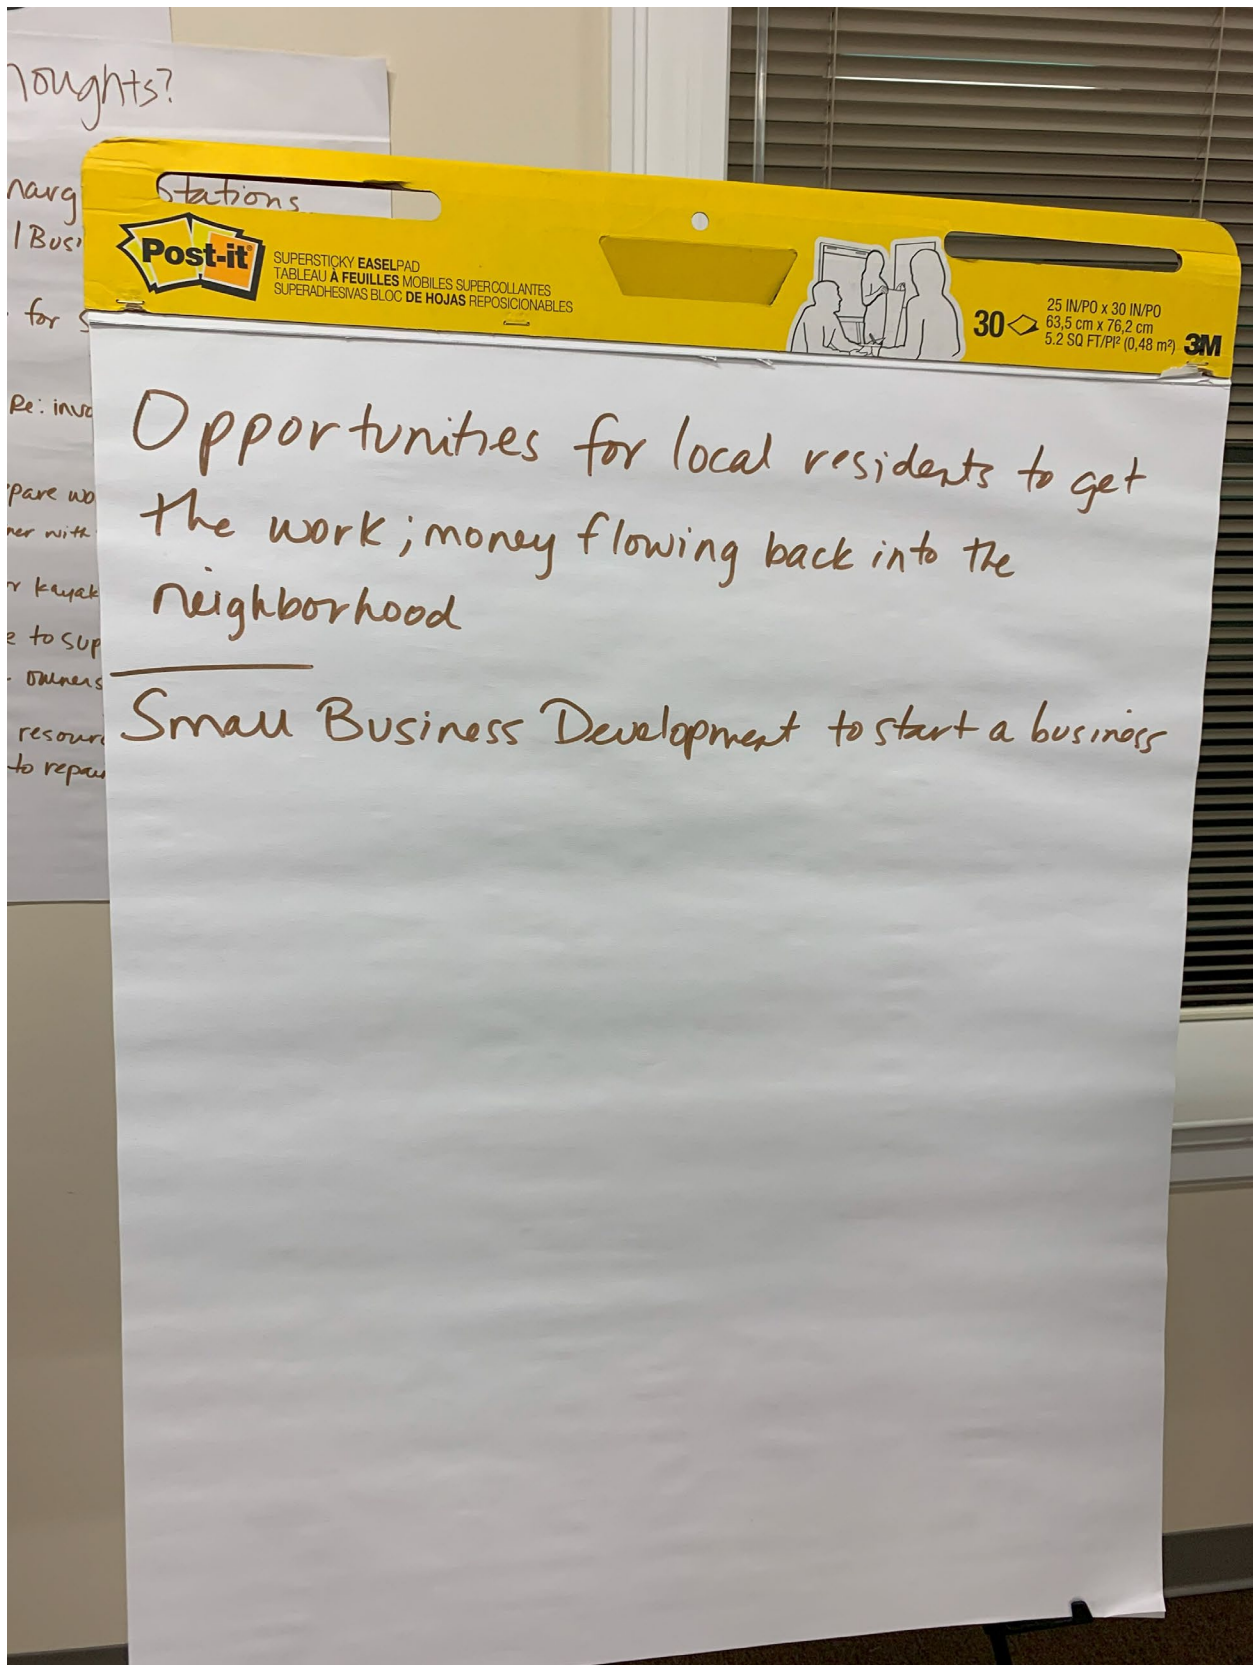 Stations
for
Re:
to sup
owners
to
Post-it
SUPERSTICKY EASELPAD
TABLEAU À FEUILLES MOBILES SUPERCOLLANTES
SUPERADHESIVAS BLOC DE HOJAS REPOSICIONABLES
30
25 IN/PO x 30 IN/PO
63,5 cm x 76,2 cm
5.2 SQ FT/PI² (0,48 m²)
3M
Opportunities for local residents to get
the work; money flowing back into the
neighborhood
Small Business Development to start a business